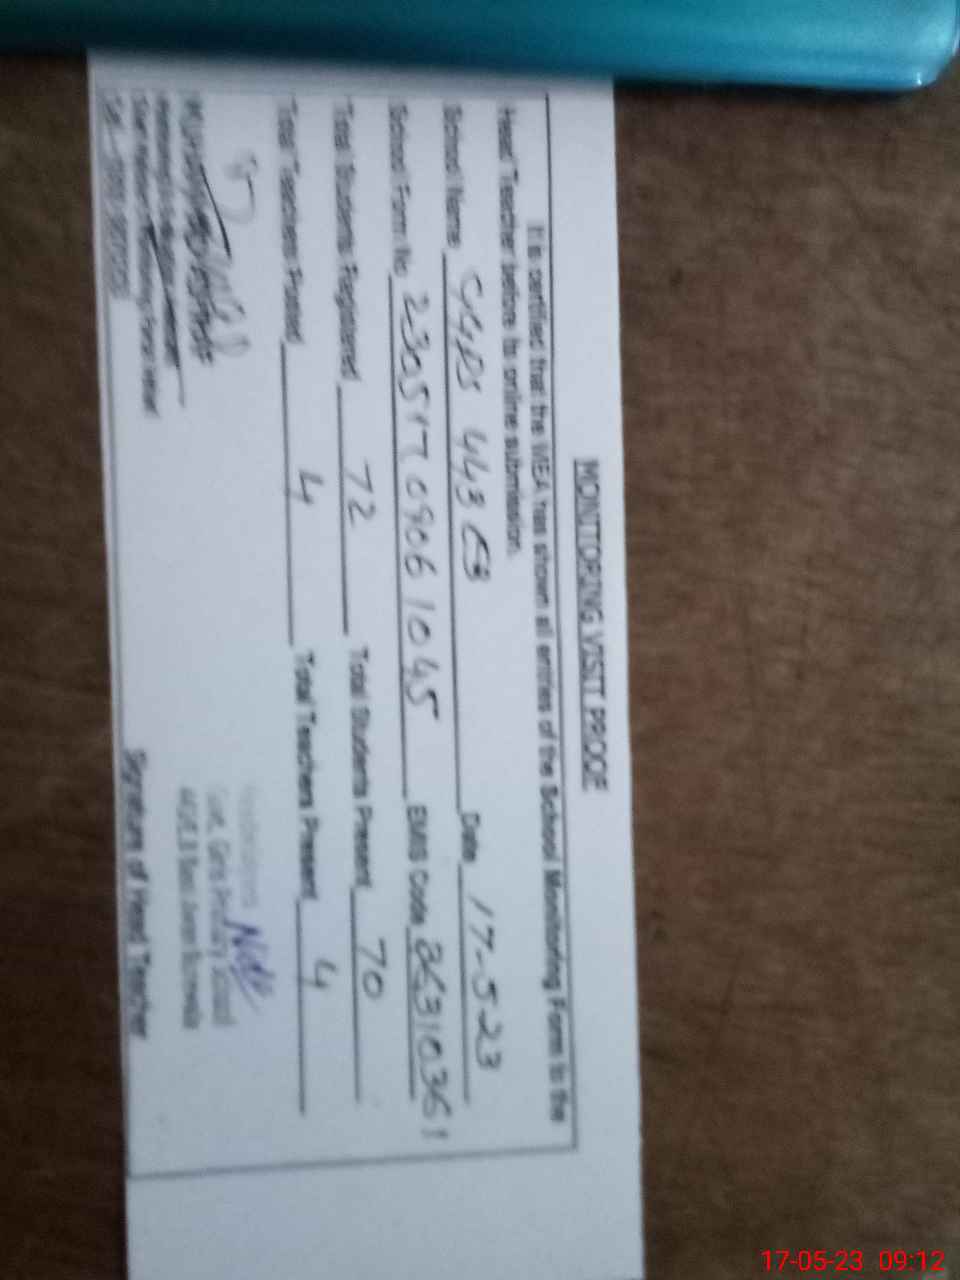 MONITORING VISIT PROOF
It is certified that the MEA has shown all entries of the School Monitoring Form to the
Head Teacher before its online submission.
School Name GGPS 443 EB Date 17-5-23
School Form No 23051709061045 EMIS code 36310361
Total Students Registered 72 Total Students Present 70
Total Teachers Posted 4 Total Teachers Present 4
Govt. Girls Primary School
Signature of Head Teacher
17-05-23 09:12